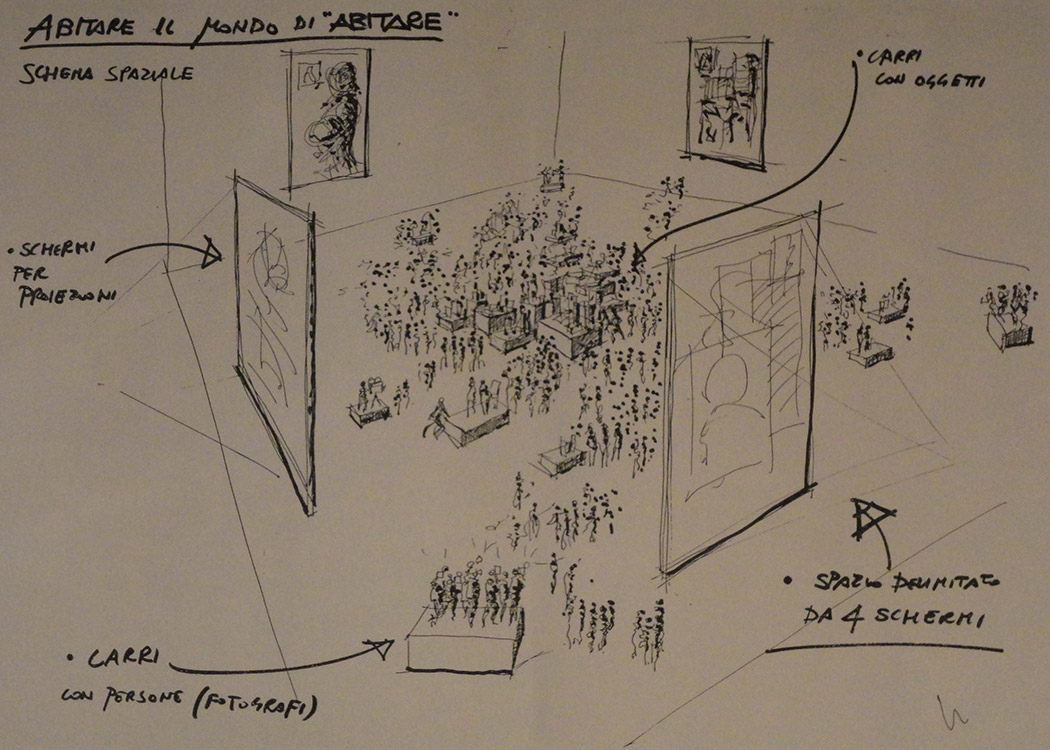 ABITARE IL MONDO DI "ABITARE"
SCHEMA SPAZIALE
• CARRI
CON OGGETTI
• SCHERMI
PER
PROIEZIONI
• SPAZIO DELIMITATO
DA 4 SCHERMI
• CARRI
CON PERSONE (FOTOGRAFI)